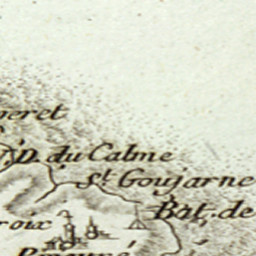 peret
D. du Calme
St Goujarne
Bat. de
roix